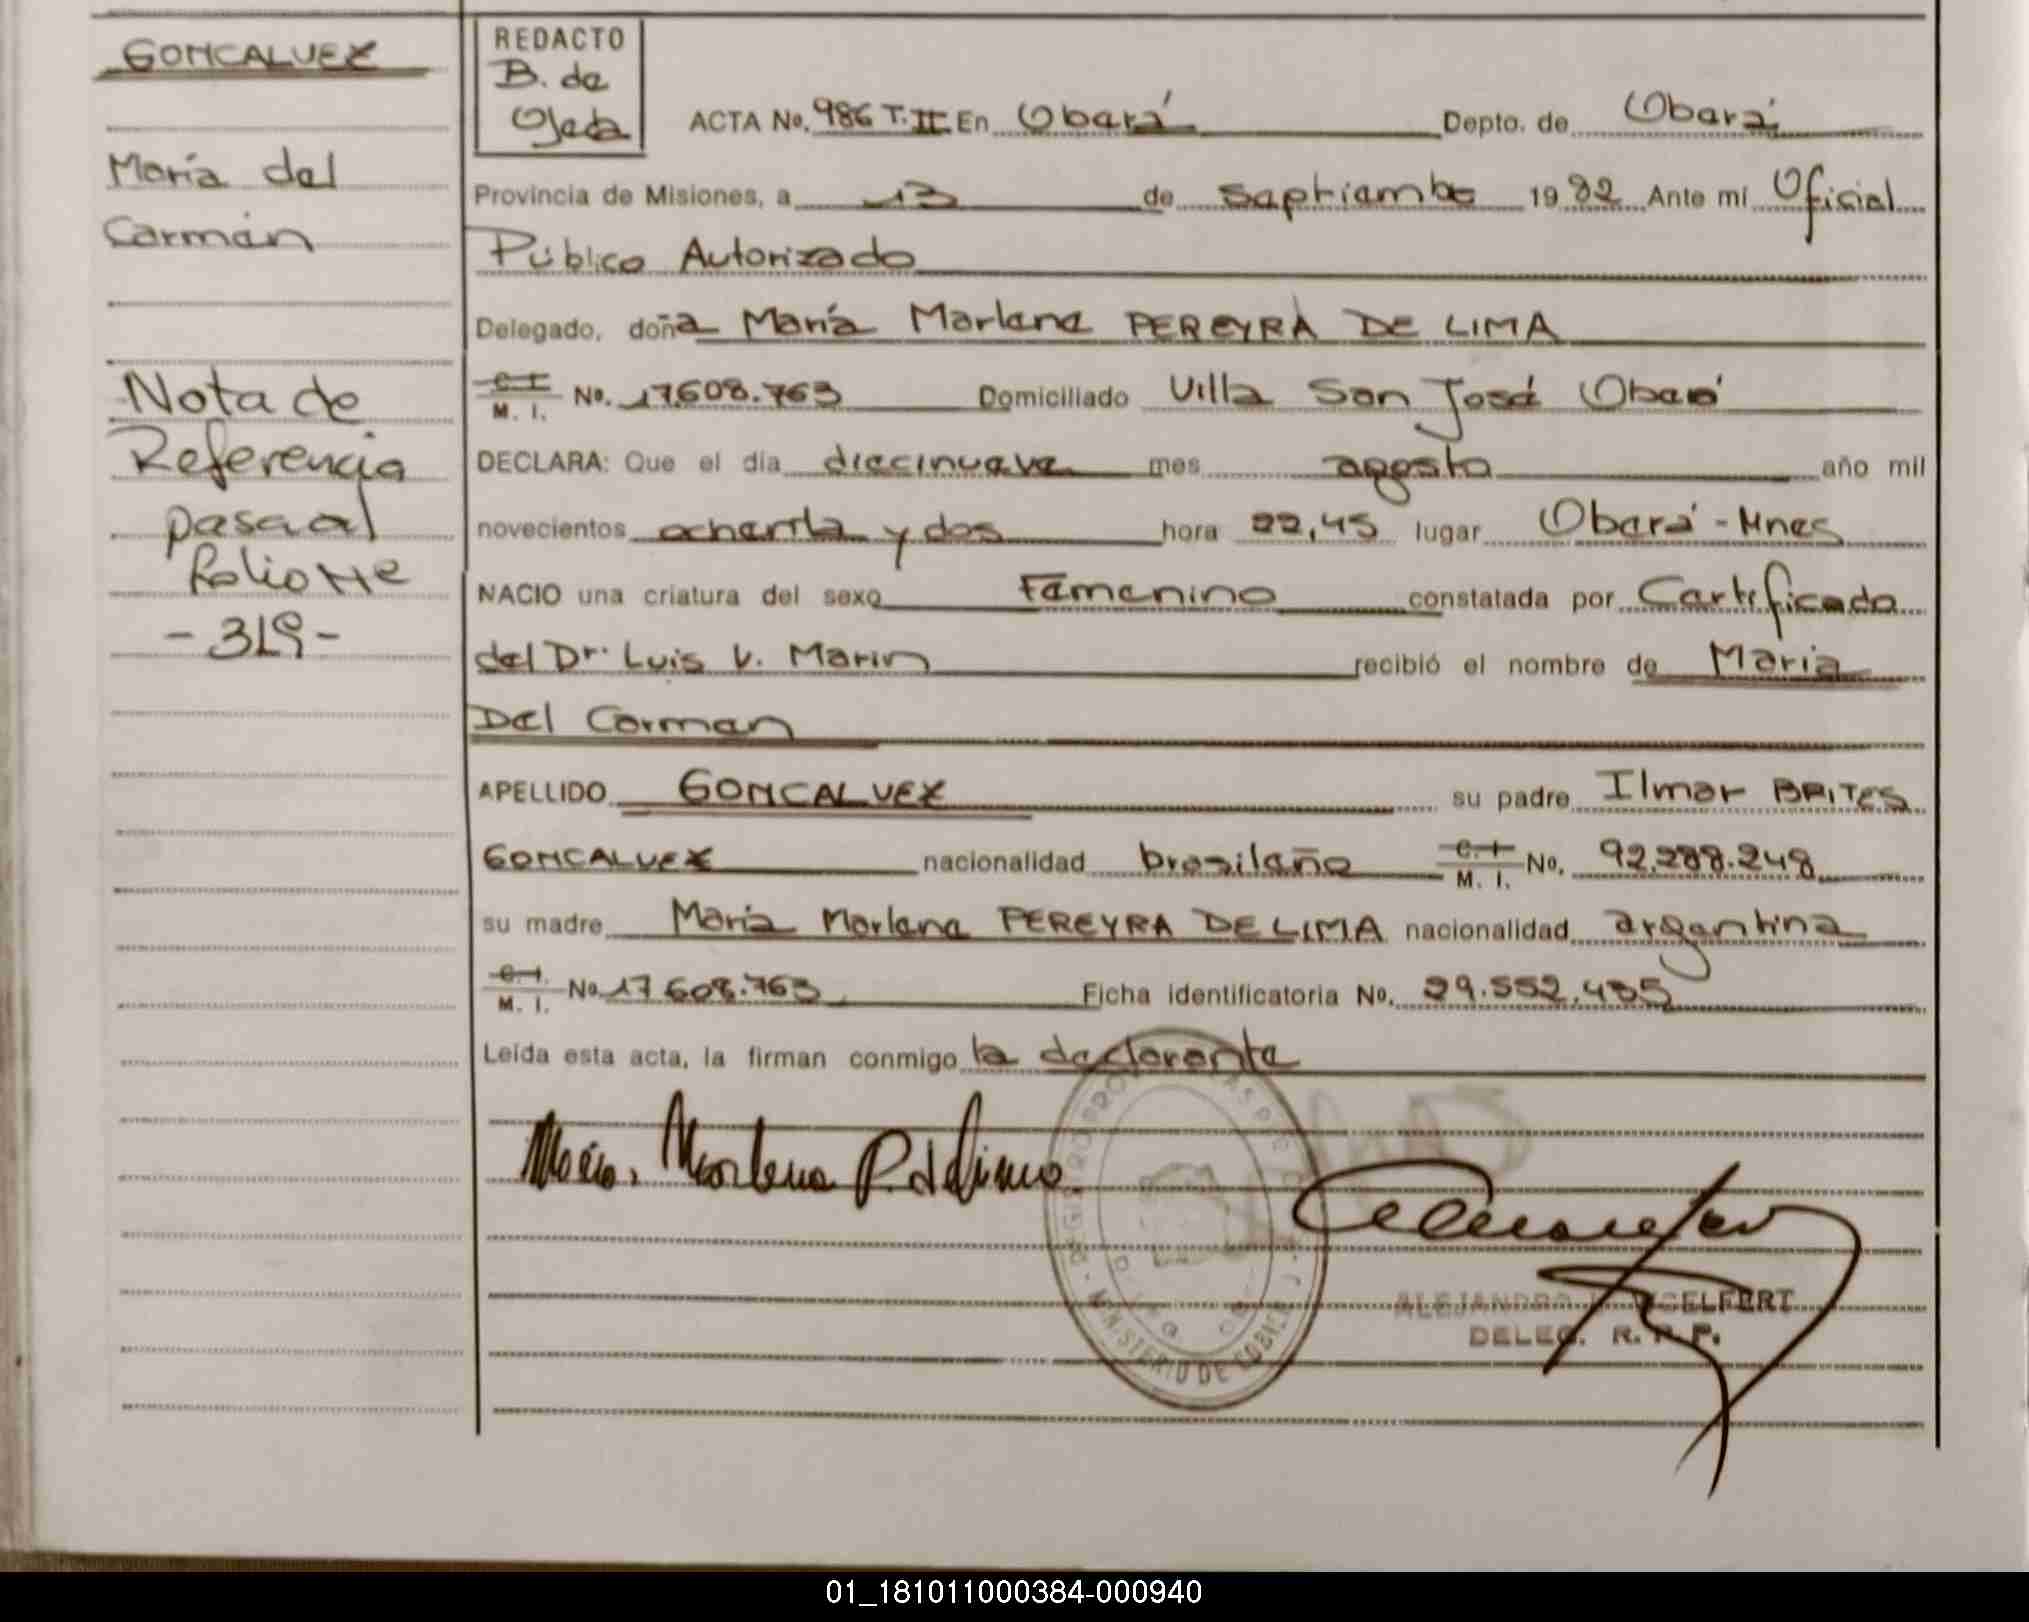 GONCALVEZ
María del
Carmen
Nota de
Referencia
pasa al
folio Nº
-319-
REDACTO
B. de
Ojeda
ACTA No. 986 T.II En Oberá Depto. de Oberá
Provincia de Misiones, a 13 de septiembre 1982 Ante mí Oficial
Público Autorizado
Delegado, doña María Marlene PEREYRA DE LIMA
C. I. M. I. No. 17.608.763 Domiciliado Villa San José Oberá
DECLARA: Que el día diecinueve mes agosto año mil
novecientos ochenta y dos hora 22,45 lugar Oberá - Mnes
NACIO una criatura del sexo Femenino constatada por Certificado
del Dr. Luis V. Marin recibió el nombre de María
Del Carmen
APELLIDO GONCALVEZ su padre Ilmar BRITES
GONCALVEZ nacionalidad brasileño C. I. M. I. No. 92.288.248
su madre María Marlene PEREYRA DE LIMA nacionalidad argentina
C. I. M. I. No. 17.608.763 Ficha identificatoria No. 29.552.435
Leída esta acta, la firman conmigo la declarante
María Marlene P. de Lima
MINISTERIO DE GOBIERNO
ALEJANDRO
DELEG. R. P. P.
01_181011000384-000940